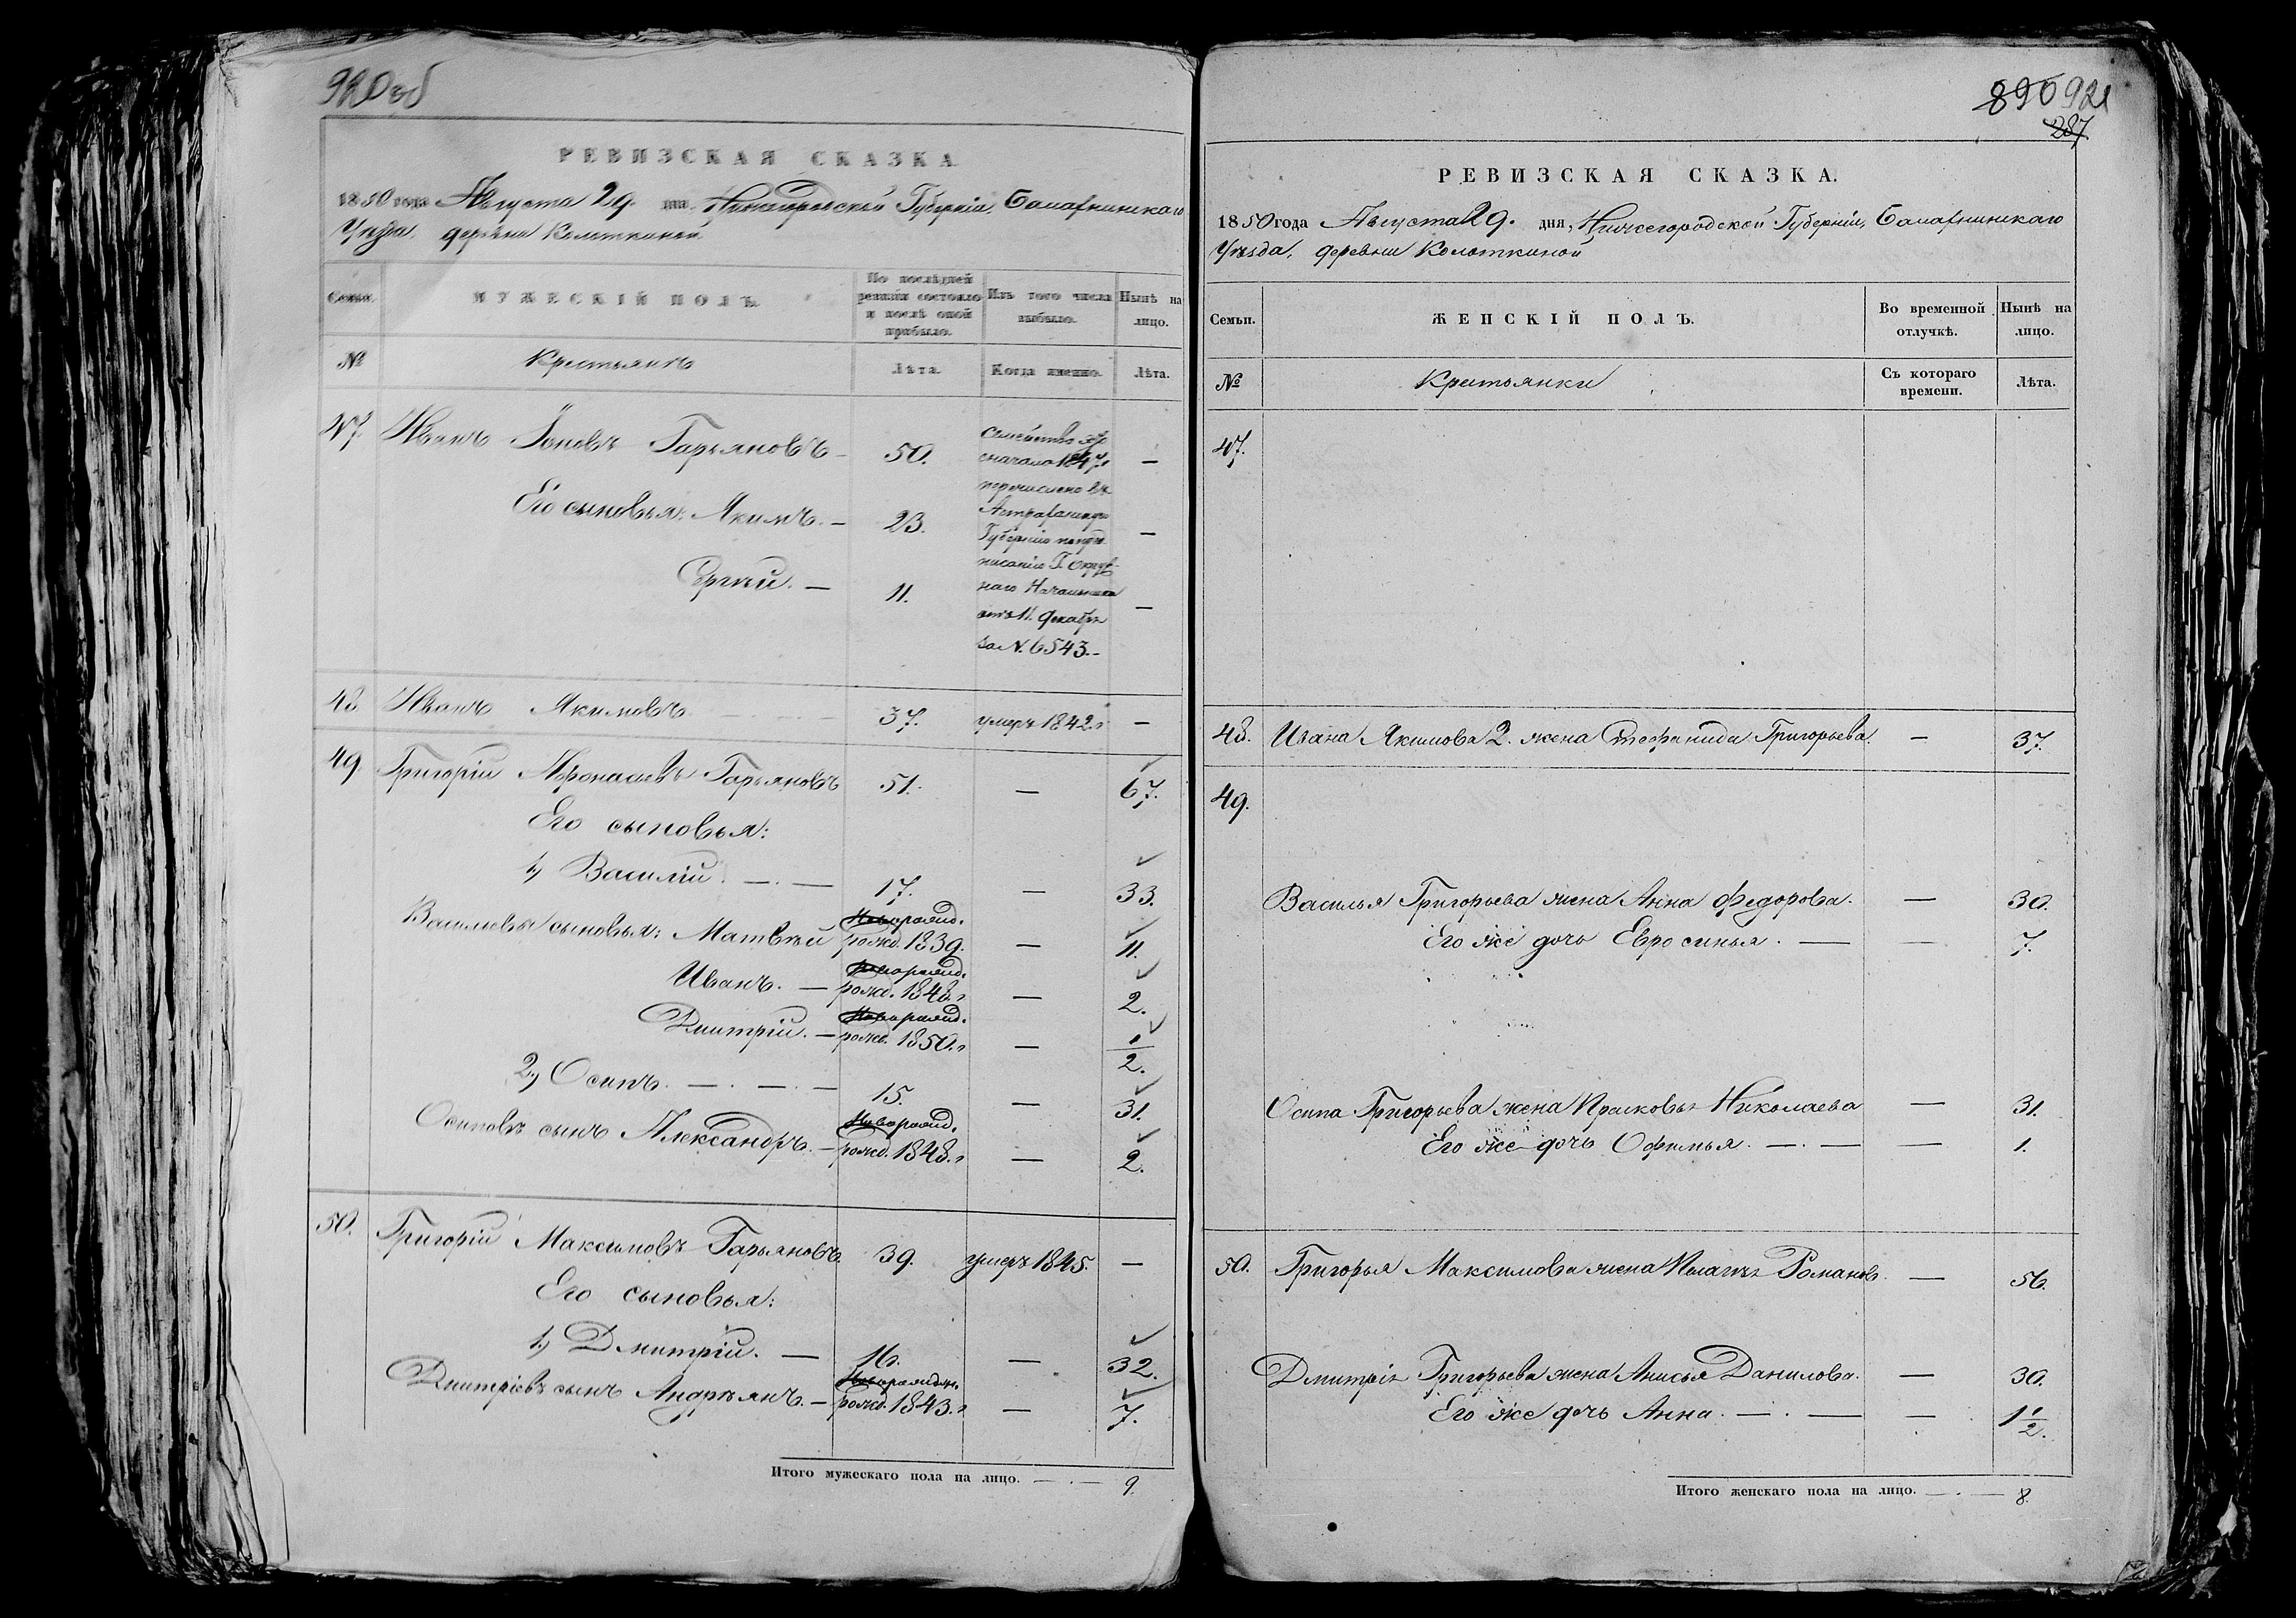 920 об
РЕВИЗСКАЯ СКАЗКА
1850 года Августа 29. дня, Нижегородской Губерніи, Балахнинскаго
Уезда, деревни Колоткиной
Семьи.
МУЖЕСКІЙ ПОЛЪ.
По последней ревизіи состояло и после оной прибыло.
Изъ того числа выбыло.
Ныне на лицо.
№ Крестьянъ Лета. Когда именно. Лета.
47. Иванъ Іоновъ Гарьяновъ – 50. –
Его сыновья: Якимъ. – 23. –
Сергей. – 11. –
Семейство это
сначала 1847 г
перечислено въ
Астраханскую
Губернію
писанію Г. Окруж-
наго Начальника
отъ 11. Декабря
за N. 6543. –
48 Иванъ Якимовъ 37. умеръ 1842 г –
49. Григорій Афонасьевъ Гарьяновъ 51. – 67.
Его сыновья:
1) Василій. – . – 17. – 33.
новорожд.
Васильевы сыновья: Матвей рожд. 1839. – 11.
новорожд.
Иванъ. – рожд. 1848. г – 2.
новорожд.
Дмитрій. – рожд. 1850. г – 1/2.
2) Осипъ. – . – . – 15. – 31.
новорожд.
Осиповъ сынъ Александръ. – рожд. 1848. г – 2.
50. Григорій Максимовъ Гарьяновъ. 39. умеръ 1845. –
Его сыновья:
1) Дмитрій. – 16. – 32.
новорожден.
Дмитріевъ сынъ Андреянъ. – рожд. 1843. г – 7.
Итого мужескаго пола на лицо. – . – 9.
890 921
287
РЕВИЗСКАЯ СКАЗКА.
1850 года Августа 29. дня, Нижегородской Губерніи, Балахнинскаго
Уѣзда, деревни Колоткиной
Семьи.
ЖЕНСКІЙ ПОЛЪ.
Во временной отлучкѣ.
Нынѣ на лицо.
№ Крестьянки Съ котораго времени. Лѣта.
47.
48. Ивана Якимова 2. жена Стефанида Григорьева. – 37.
49.
Василья Григорьева жена Анна Федорова. – 30.
Его же дочь Евросинья. – – 7.
Осипа Григорьева жена Прасковья Николаева – 31.
Его же дочь Офимья. – . – – 1.
50. Григорья Максимова жена Пелагея Романов. – 56.
Дмитрія Григорьева жена Анисья Данилова. – 30.
Его же дочь Анна. – . – – 1 1/2.
Итого женскаго пола на лицо. – . – 8.